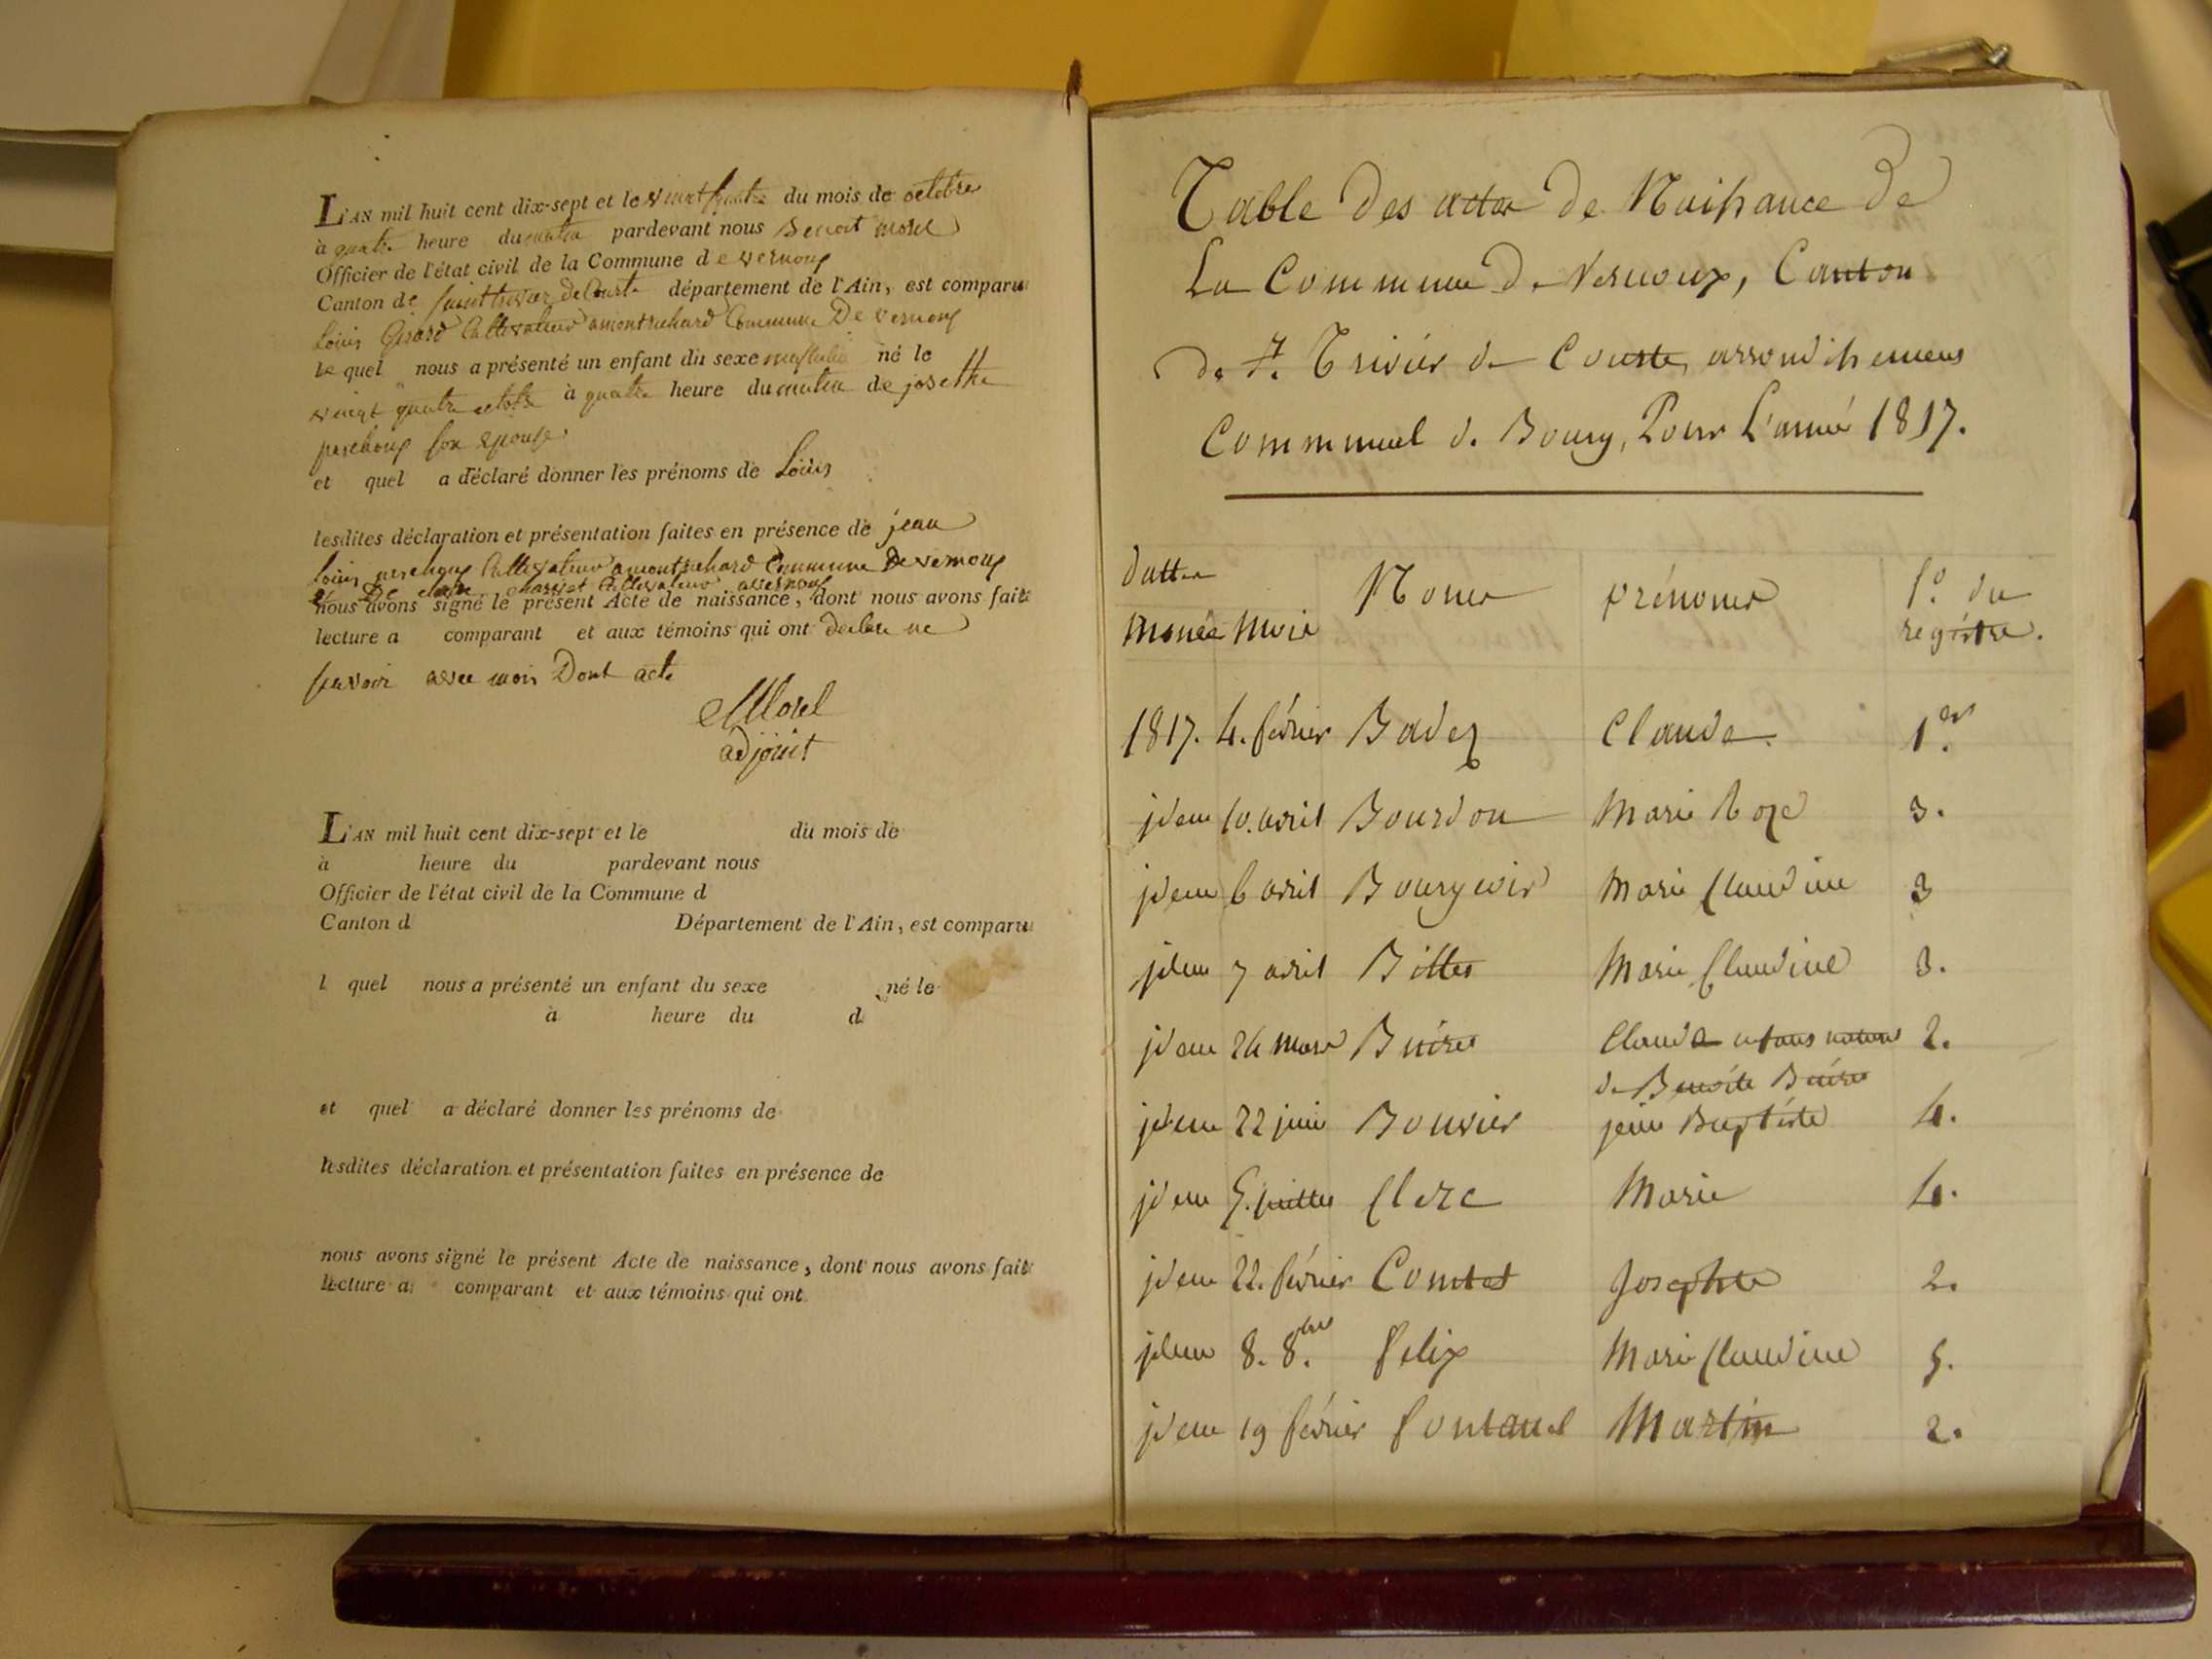 L'AN mil huit cent dix-sept et le vingt quatre du mois de octobre
à quatre heure du matin pardevant nous Benoit morel
Officier de l'état civil de la Commune de vernoux
Canton de saint trivier De Courte département de l'Ain, est comparu
Louis Girard Cultivateur amontrichard Commune De vernoux
le quel nous a présenté un enfant du sexe masculin né le
vingt quatre octobre à quatre heure du matin de josephte
perchoux son epouse
et quel a déclaré donner les prénoms de Louis
lesdites déclaration et présentation faites en présence de jean
louis perchoux Cultivateur amontrichard Commune De vernoux
et De claude Cultivateur avernoux
nous avons signé le présent Acte de naissance, dont nous avons fait
lecture a comparant et aux témoins qui ont declare ne
savoir avec mois Dont acte
Morel
adjoint
L'AN mil huit cent dix-sept et le du mois de
à heure du pardevant nous
Officier de l'état civil de la Commune d
Canton d Département de l'Ain, est comparu
l quel nous a présenté un enfant du sexe né le
à heure du d
et quel a déclaré donner les prénoms de
lesdites déclaration et présentation faites en présence de
nous avons signé le présent Acte de naissance, dont nous avons fait
lecture a comparant et aux témoins qui ont
Table des actes de Naissance de
La Commune de Vernoux, Canton
de St. Trivier de Courte, arrondissement
Communal de Bourg, Pour L'année 1817.
dattes Noms prénoms f.o du
Mois registre.
1817. 4. février Badez Claude 1er.
idem 10. avril Bourdon Marie Roze 3.
idem 6 avril Bourgeois Marie Claudine 3
idem 7 avril Billet Marie Claudine 3.
idem 24 mars Buiret Claude enfans naturel 2.
de Benoite Buiret
idem 22 juin Bouvier jean Baptiste 4.
idem 5. juillet Clerc Marie 4.
idem 22. février Comtet Josephte 2.
idem 8. 8.bre felix Marie Claudine 5.
idem 19 février fontanel Martin 2.